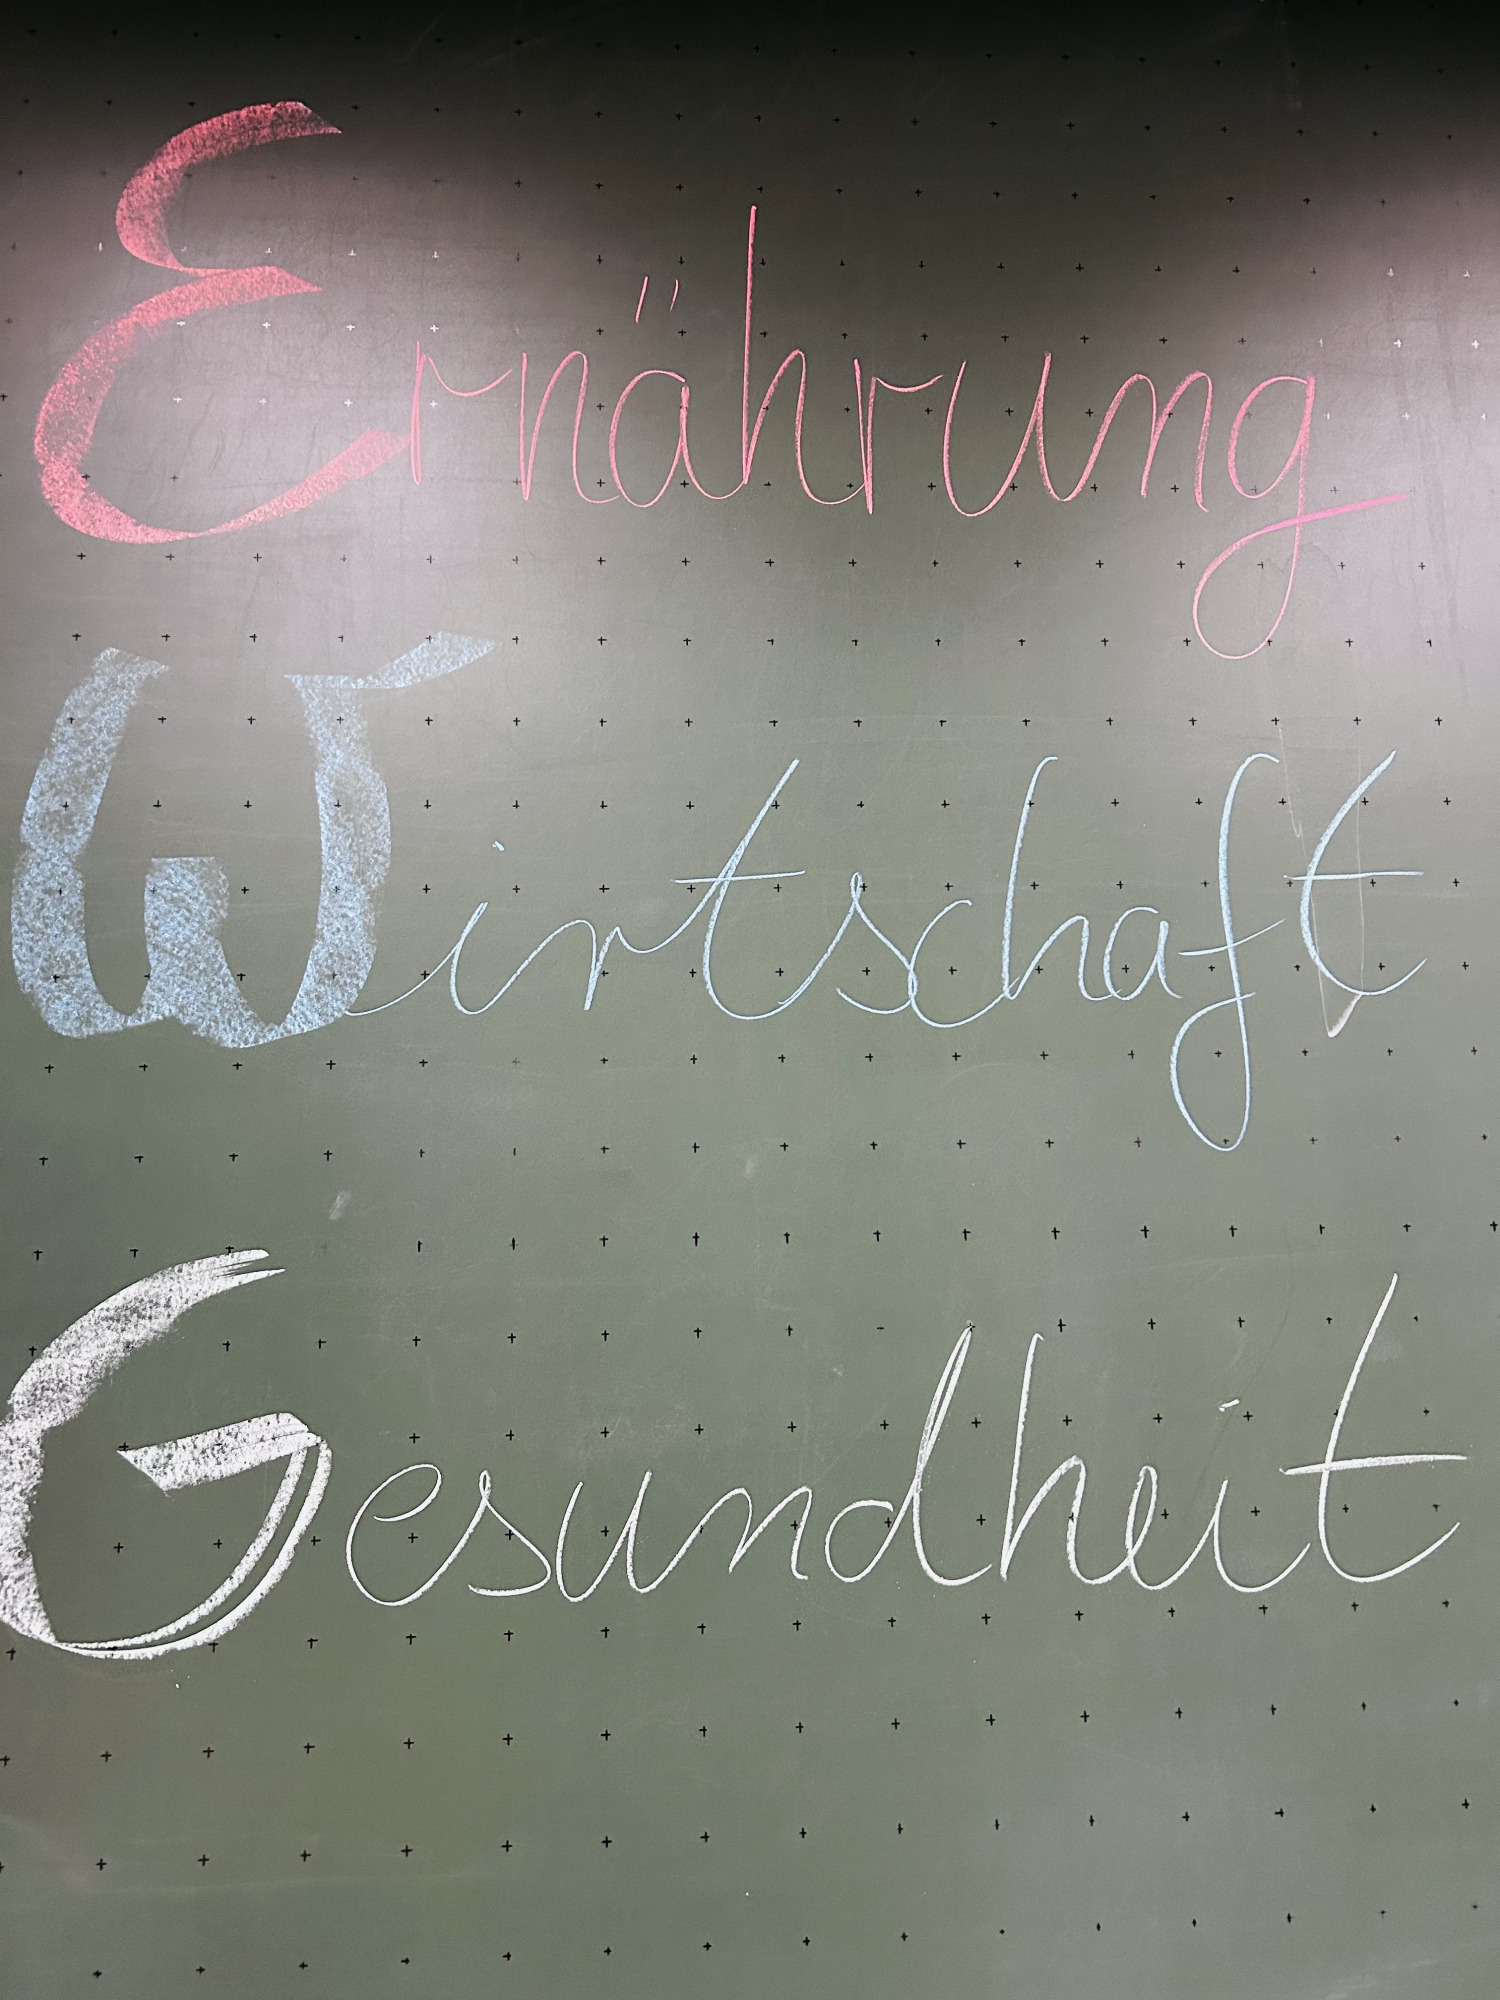 Ernährung
Wirtschaft
Gesundheit